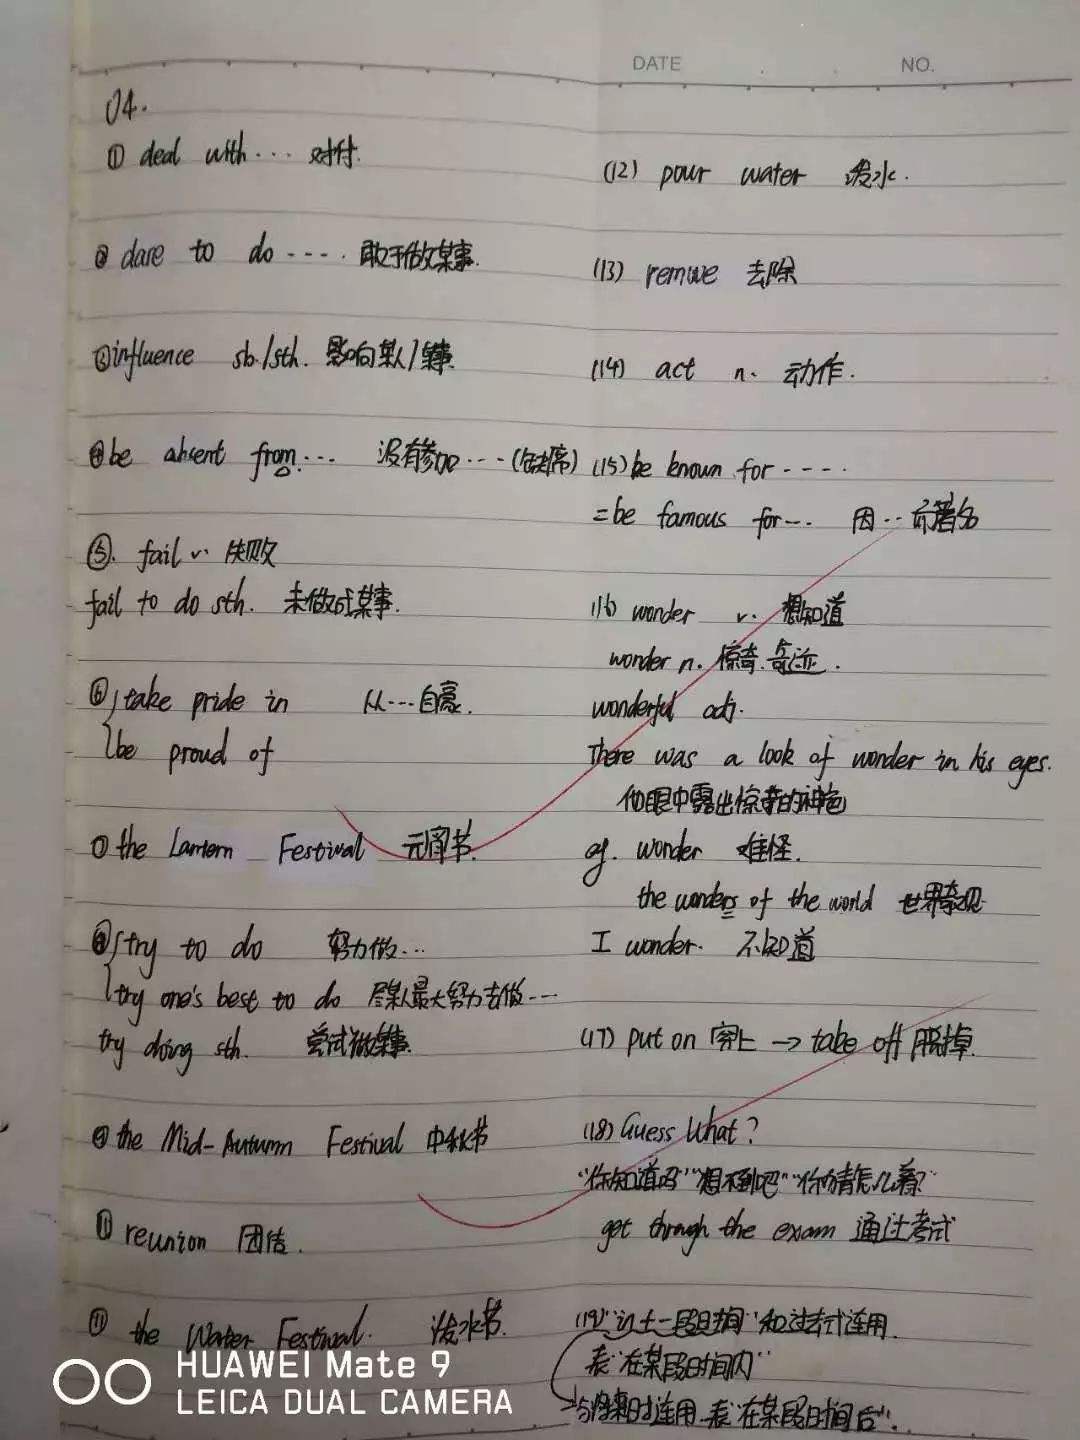 DATE
NO.
U4.
① deal with... 对付.
② dare to do .... 敢于做某事.
③ influence sb./sth. 影响某人/某事.
④ be absent from... 没有参加...(缺席)
⑤. fail v. 失败
fail to do sth. 未做成某事.
⑥ take pride in 以...自豪.
be proud of
⑦ the Lantern Festival 元宵节.
⑧ try to do 努力做...
try one's best to do 尽某人最大努力去做...
try doing sth. 尝试做某事.
⑨ the Mid-Autumn Festival 中秋节
reunion 团结.
⑪ the Water Festival. 泼水节.
(12) pour water 泼水.
(13) remove 去除
(14) act n. 动作.
(15) be known for ....
=be famous for... 因...而著名
(16) wonder v. 想知道
wonder n. 惊奇.奇迹.
wonderful adj.
There was a look of wonder in his eyes.
他眼中露出惊奇的神色
wonder 难怪.
the wonders of the world 世界奇观
I wonder. 不知道
(17) put on 穿上 → take off 脱掉.
(18) Guess What?
"你知道吗" "想不到吧" "你猜怎么着?"
get through the exam 通过考试
(19) "in+一段时间" 和过去式连用.
表"在某段时间内"
与将来时连用.表"在某段时间后".
HUAWEI Mate 9
LEICA DUAL CAMERA